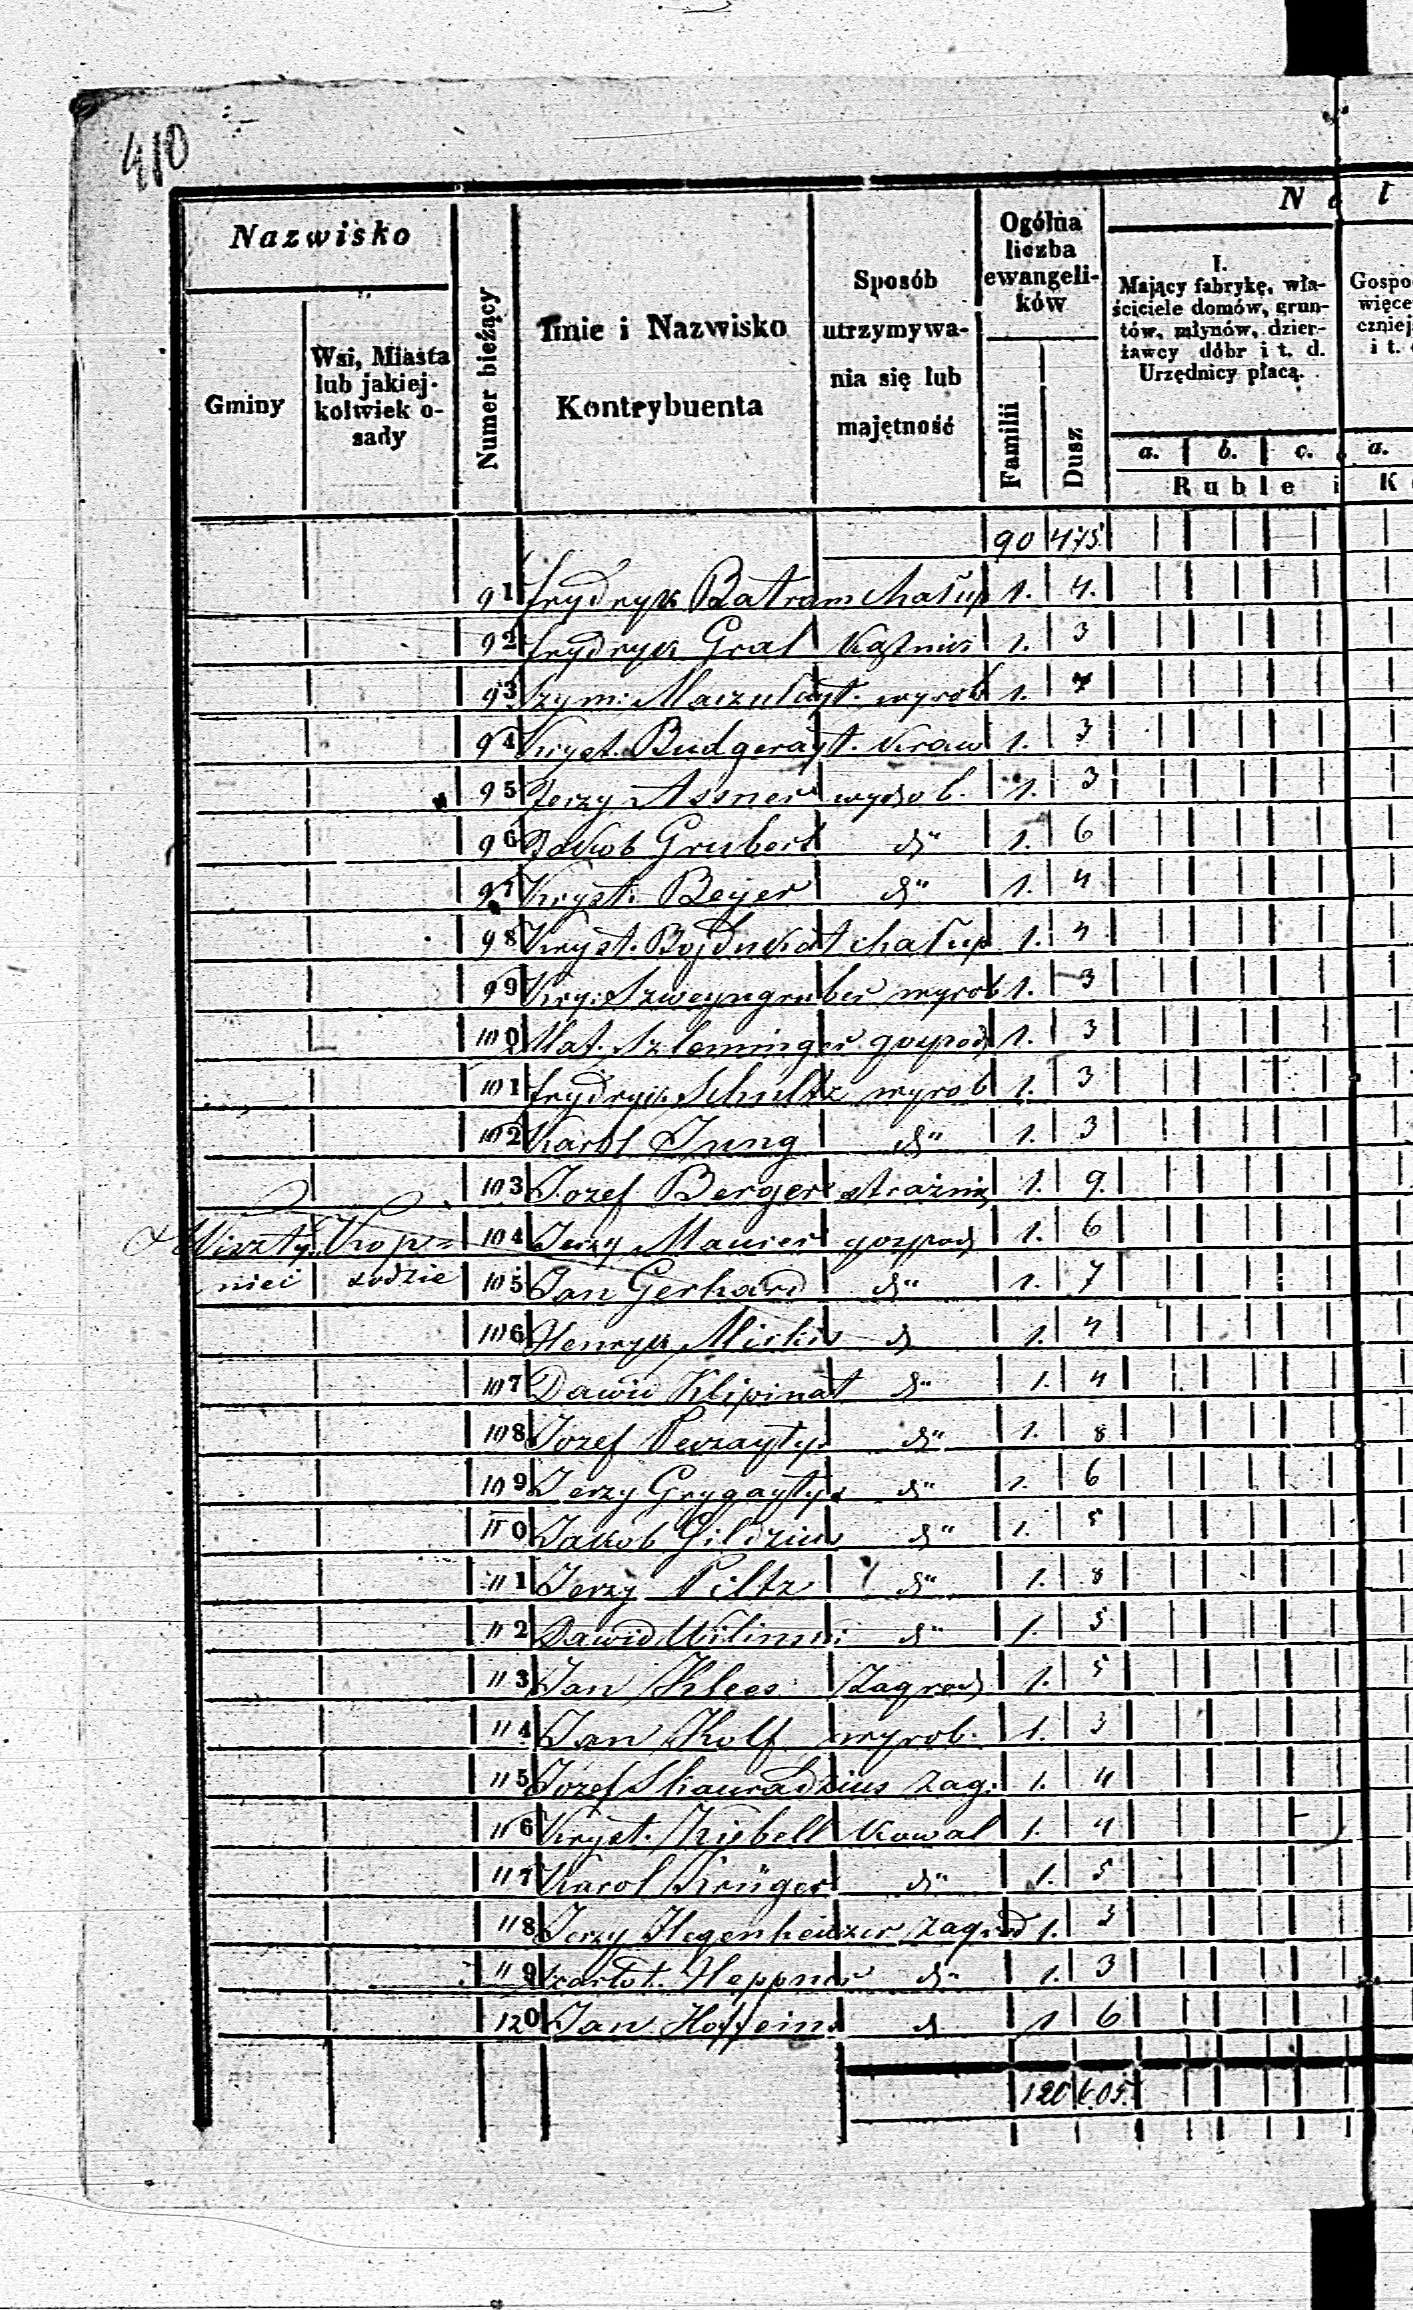 410
Nazwisko
Gminy
Wsi, Miasta
lub jakiej-
kolwiek o-
sady
Numer bieżący
Imie i Nazwisko
Kontrybuenta
Sposób
utrzymywa-
nia się lub
majętność
Ogólna
liczba
ewangeli-
ków
Familii
Dusz
I.
Mający fabrykę, wła-
ściciele domów, grun-
tów, młynów, dzier-
żawcy dóbr i t. d.
Urzędnicy płacą.
a. b. c. a.
Ruble i K
90 475
91 Frydryk Batram chałup 1. 4.
92 Frydryk Gral 1. 3
93 Szym: wyrob 1. 7
94 Kryst. Budgerayt. Kraw 1. 3
95 Jerzy Assner wyrob. 1. 3
96 Jakob Grubert d" 1. 6
97 Kryst: Beyer d" 1. 4
98 Kryst. Bojdukat chałup 1. 4
99 Kry: Szweyngruber wyrob 1. 3
100 Mat. Szleminger gospod 1. 3
101 Frydryk Schultz wyrob 1. 3
102 Karol Jung d" 1. 3
103 Jozef Berger strażnik 1. 9.
Wiszty- Kop- 104 Jerzy Maurer gospod 1. 6
niec sodzie 105 Jan Gerhard d" 1. 7
106 Henryk d 1. 4
107 Dawid Klipinat d" 1. 4
108 Jozef d" 1. 8
109 Jerzy Grygaytys d" 1. 6
110 Jakob Gildzius d" 1. 5
111 Jerzy Piltz d" 1. 8
112 Dawid d" 1. 5
113 Jan Klees Zagrod 1. 5
114 Jan Kolf wyrob. 1. 3
115 Józef Skauradzius Zag: 1. 4
116 Kryst. Kiebell Kowal 1. 4
117 Karol Krüger d" 1. 5
118 Jerzy Hegenheuzer Zagrod 1. 3
119 Heppner d" 1. 3
120 Jan Hoffeins d 1 6
120 605.